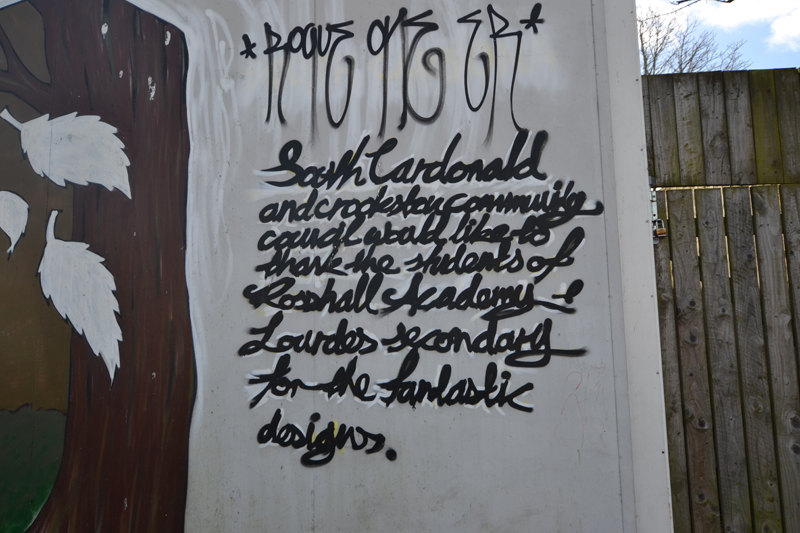 *ROGUE ONE ER*
South Cardonald
and crookston community
council would like to
thank the students of
Rosshall Academy +
Lourdes secondary
for the fantastic
designs.